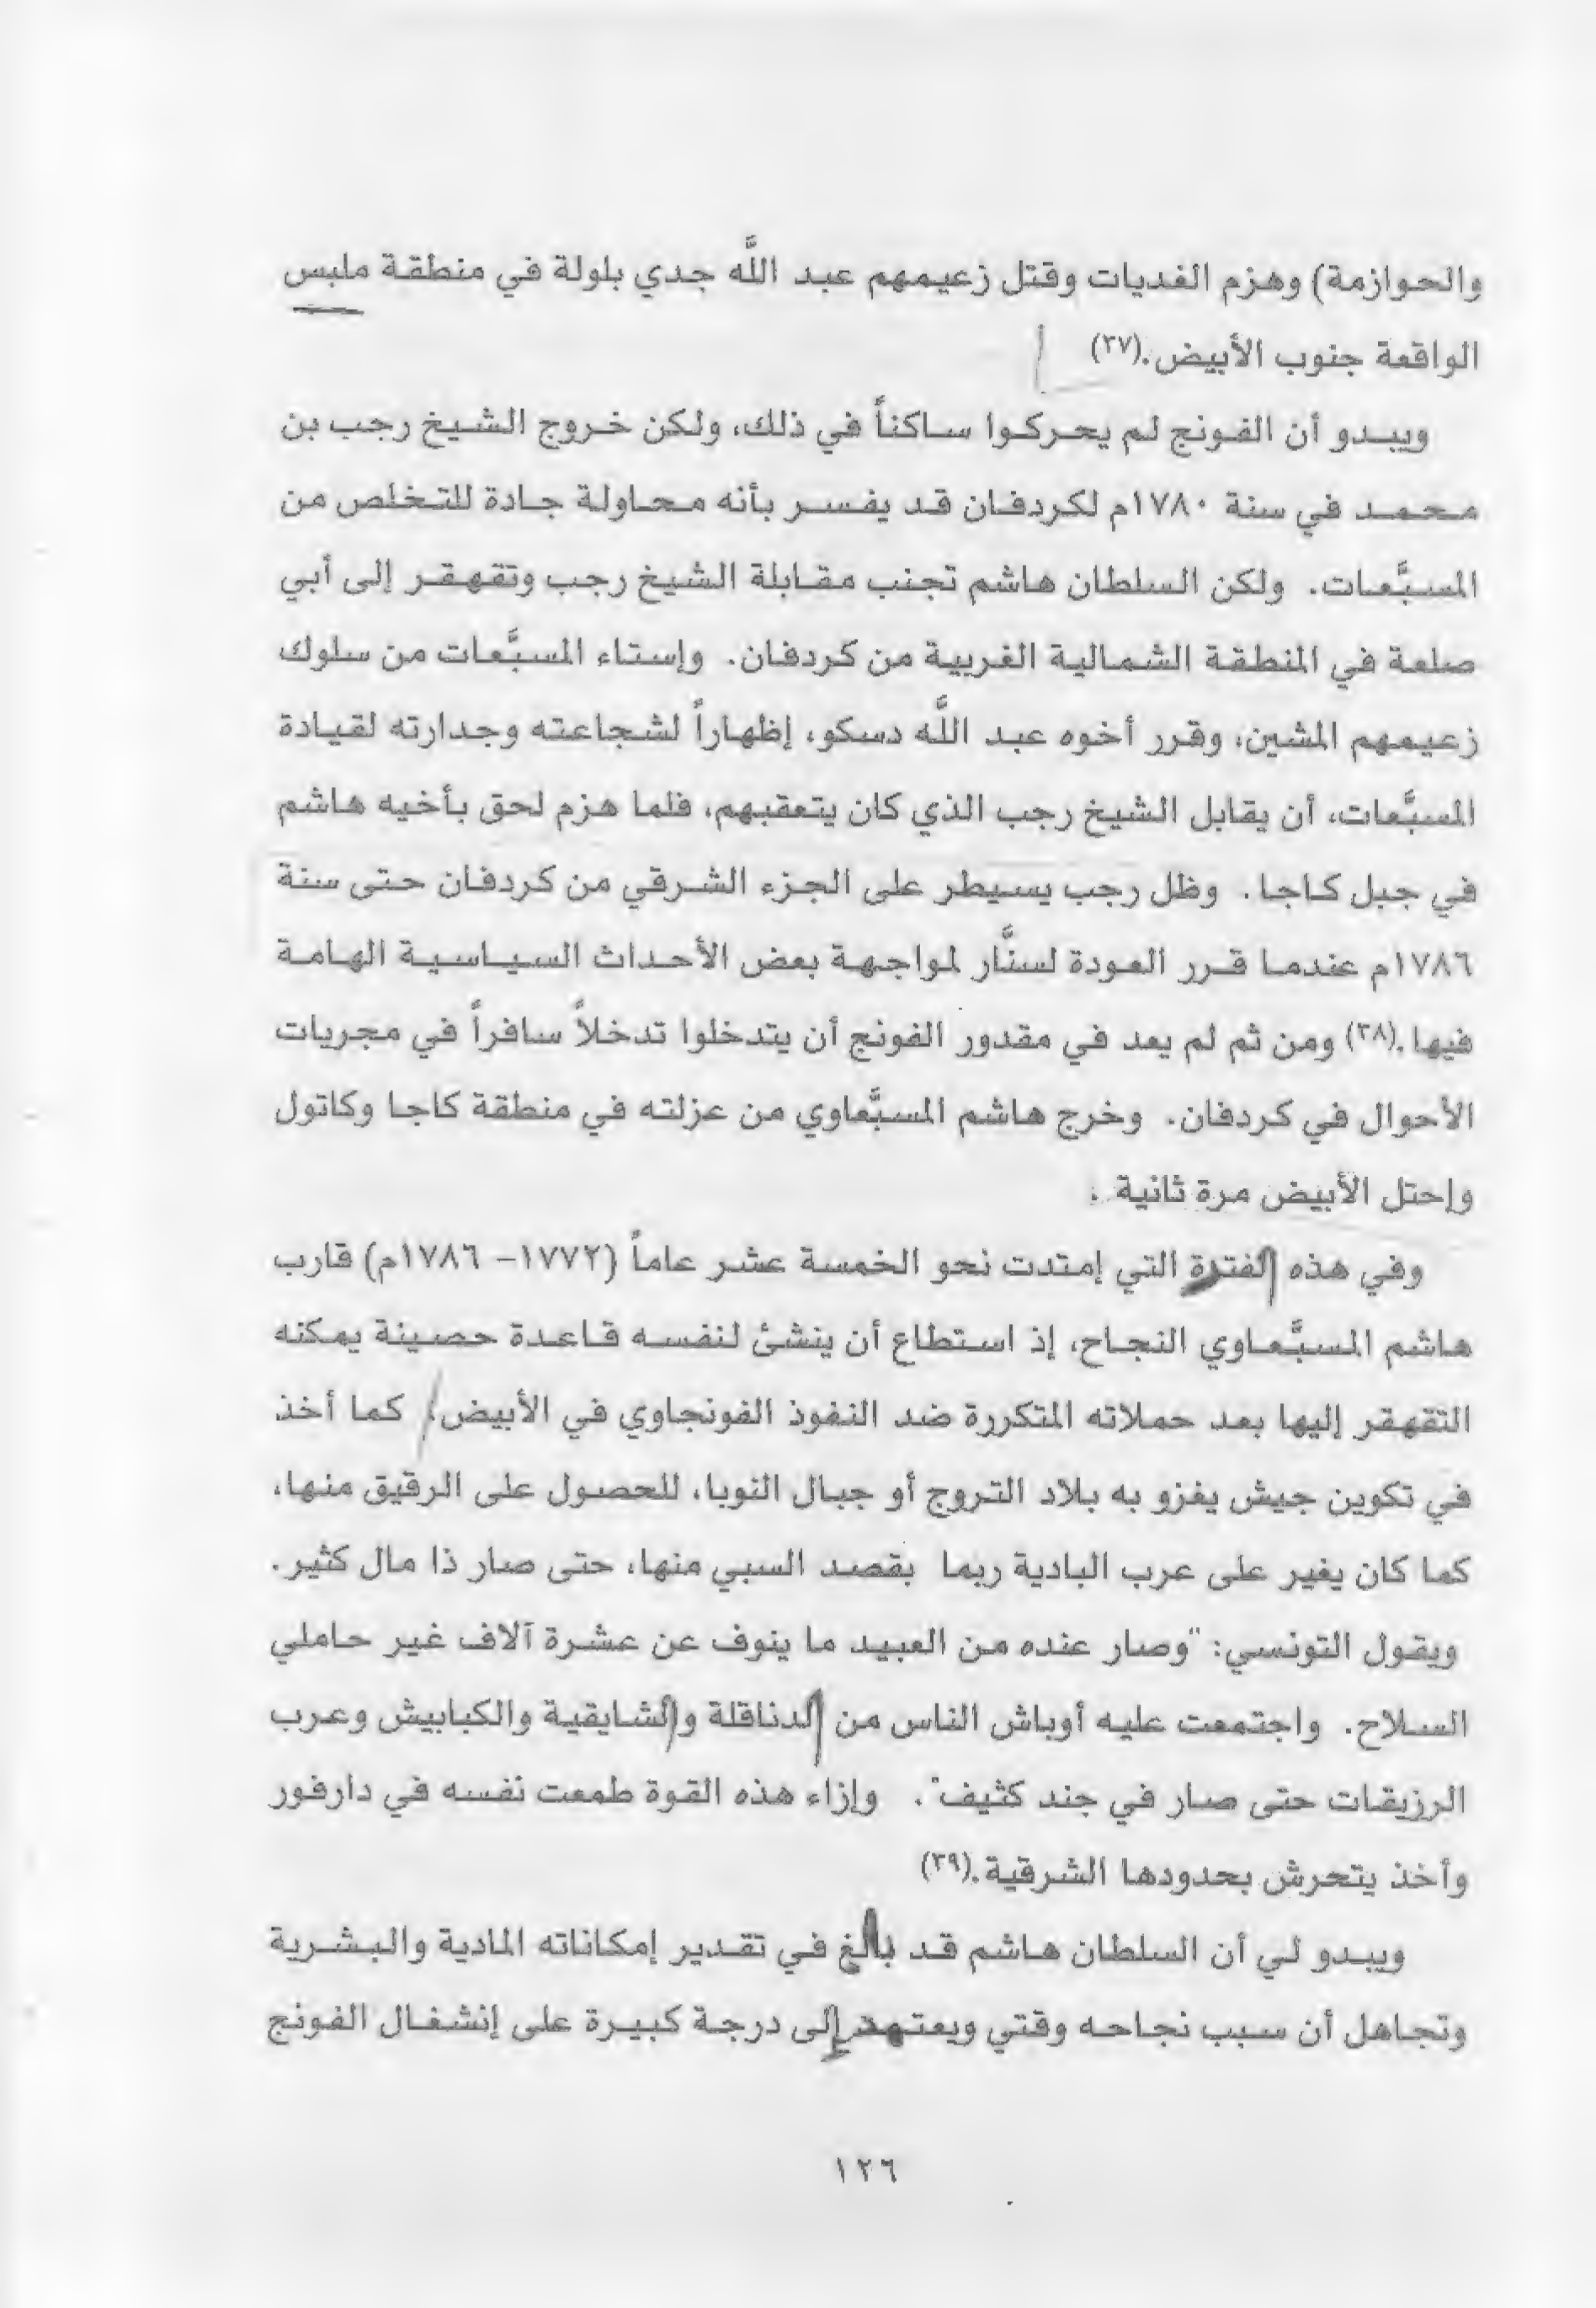 والحوازمة) وهزم الغديات وقتل زعيمهم عبد اللَّه جدي بلولة في منطقة ملبس
الواقعة جنوب الأبيض.(٣٧)
ويبدو أن الفونج لم يحركوا ساكناً في ذلك، ولكن خروج الشيخ رجب بن
محمد في سنة ١٧٨٠م لكردفان قد يفسر بأنه محاولة جادة للتخلص من
المسبَّعات. ولكن السلطان هاشم تجنب مقابلة الشيخ رجب وتقهقر إلى أبي
صلعة في المنطقة الشمالية الغربية من كردفان. وإستاء المسبَّعات من سلوك
زعيمهم المشين، وقرر أخوه عبد اللَّه دسكو، إظهاراً لشجاعته وجدارته لقيادة
المسبَّعات، أن يقابل الشيخ رجب الذي كان يتعقبهم، فلما هزم لحق بأخيه هاشم
في جبل كاجا. وظل رجب يسيطر على الجزء الشرقي من كردفان حتى سنة
١٧٨٦م عندما قرر العودة لسنَّار لمواجهة بعض الأحداث السياسية الهامة
فيها.(٣٨) ومن ثم لم يعد في مقدور الفونج أن يتدخلوا تدخلاً سافراً في مجريات
الأحوال في كردفان. وخرج هاشم المسبَّعاوي من عزلته في منطقة كاجا وكاتول
وإحتل الأبيض مرة ثانية.
وفي هذه الفترة التي إمتدت نحو الخمسة عشر عاماً (١٧٧٢– ١٧٨٦م) قارب
هاشم المسبَّعاوي النجاح، إذ استطاع أن ينشئ لنفسه قاعدة حصينة يمكنه
التقهقر إليها بعد حملاته المتكررة ضد النفوذ الفونجاوي في الأبيض/ كما أخذ
في تكوين جيش يغزو به بلاد التروج أو جبال النوبا، للحصول على الرقيق منها،
كما كان يغير على عرب البادية ربما بقصد السبي منها، حتى صار ذا مال كثير.
ويقول التونسي: "وصار عنده من العبيد ما ينوف عن عشرة آلاف غير حاملي
السلاح. واجتمعت عليه أوباش الناس من الدناقلة والشايقية والكبابيش وعرب
الرزيقات حتى صار في جند كثيف". وإزاء هذه القوة طمعت نفسه في دارفور
وأخذ يتحرش بحدودها الشرقية.(٣٩)
ويبدو لي أن السلطان هاشم قد بالغ في تقدير إمكاناته المادية والبشرية
وتجاهل أن سبب نجاحه وقتي ويعتمد إلى درجة كبيرة على إنشغال الفونج
١٢٦